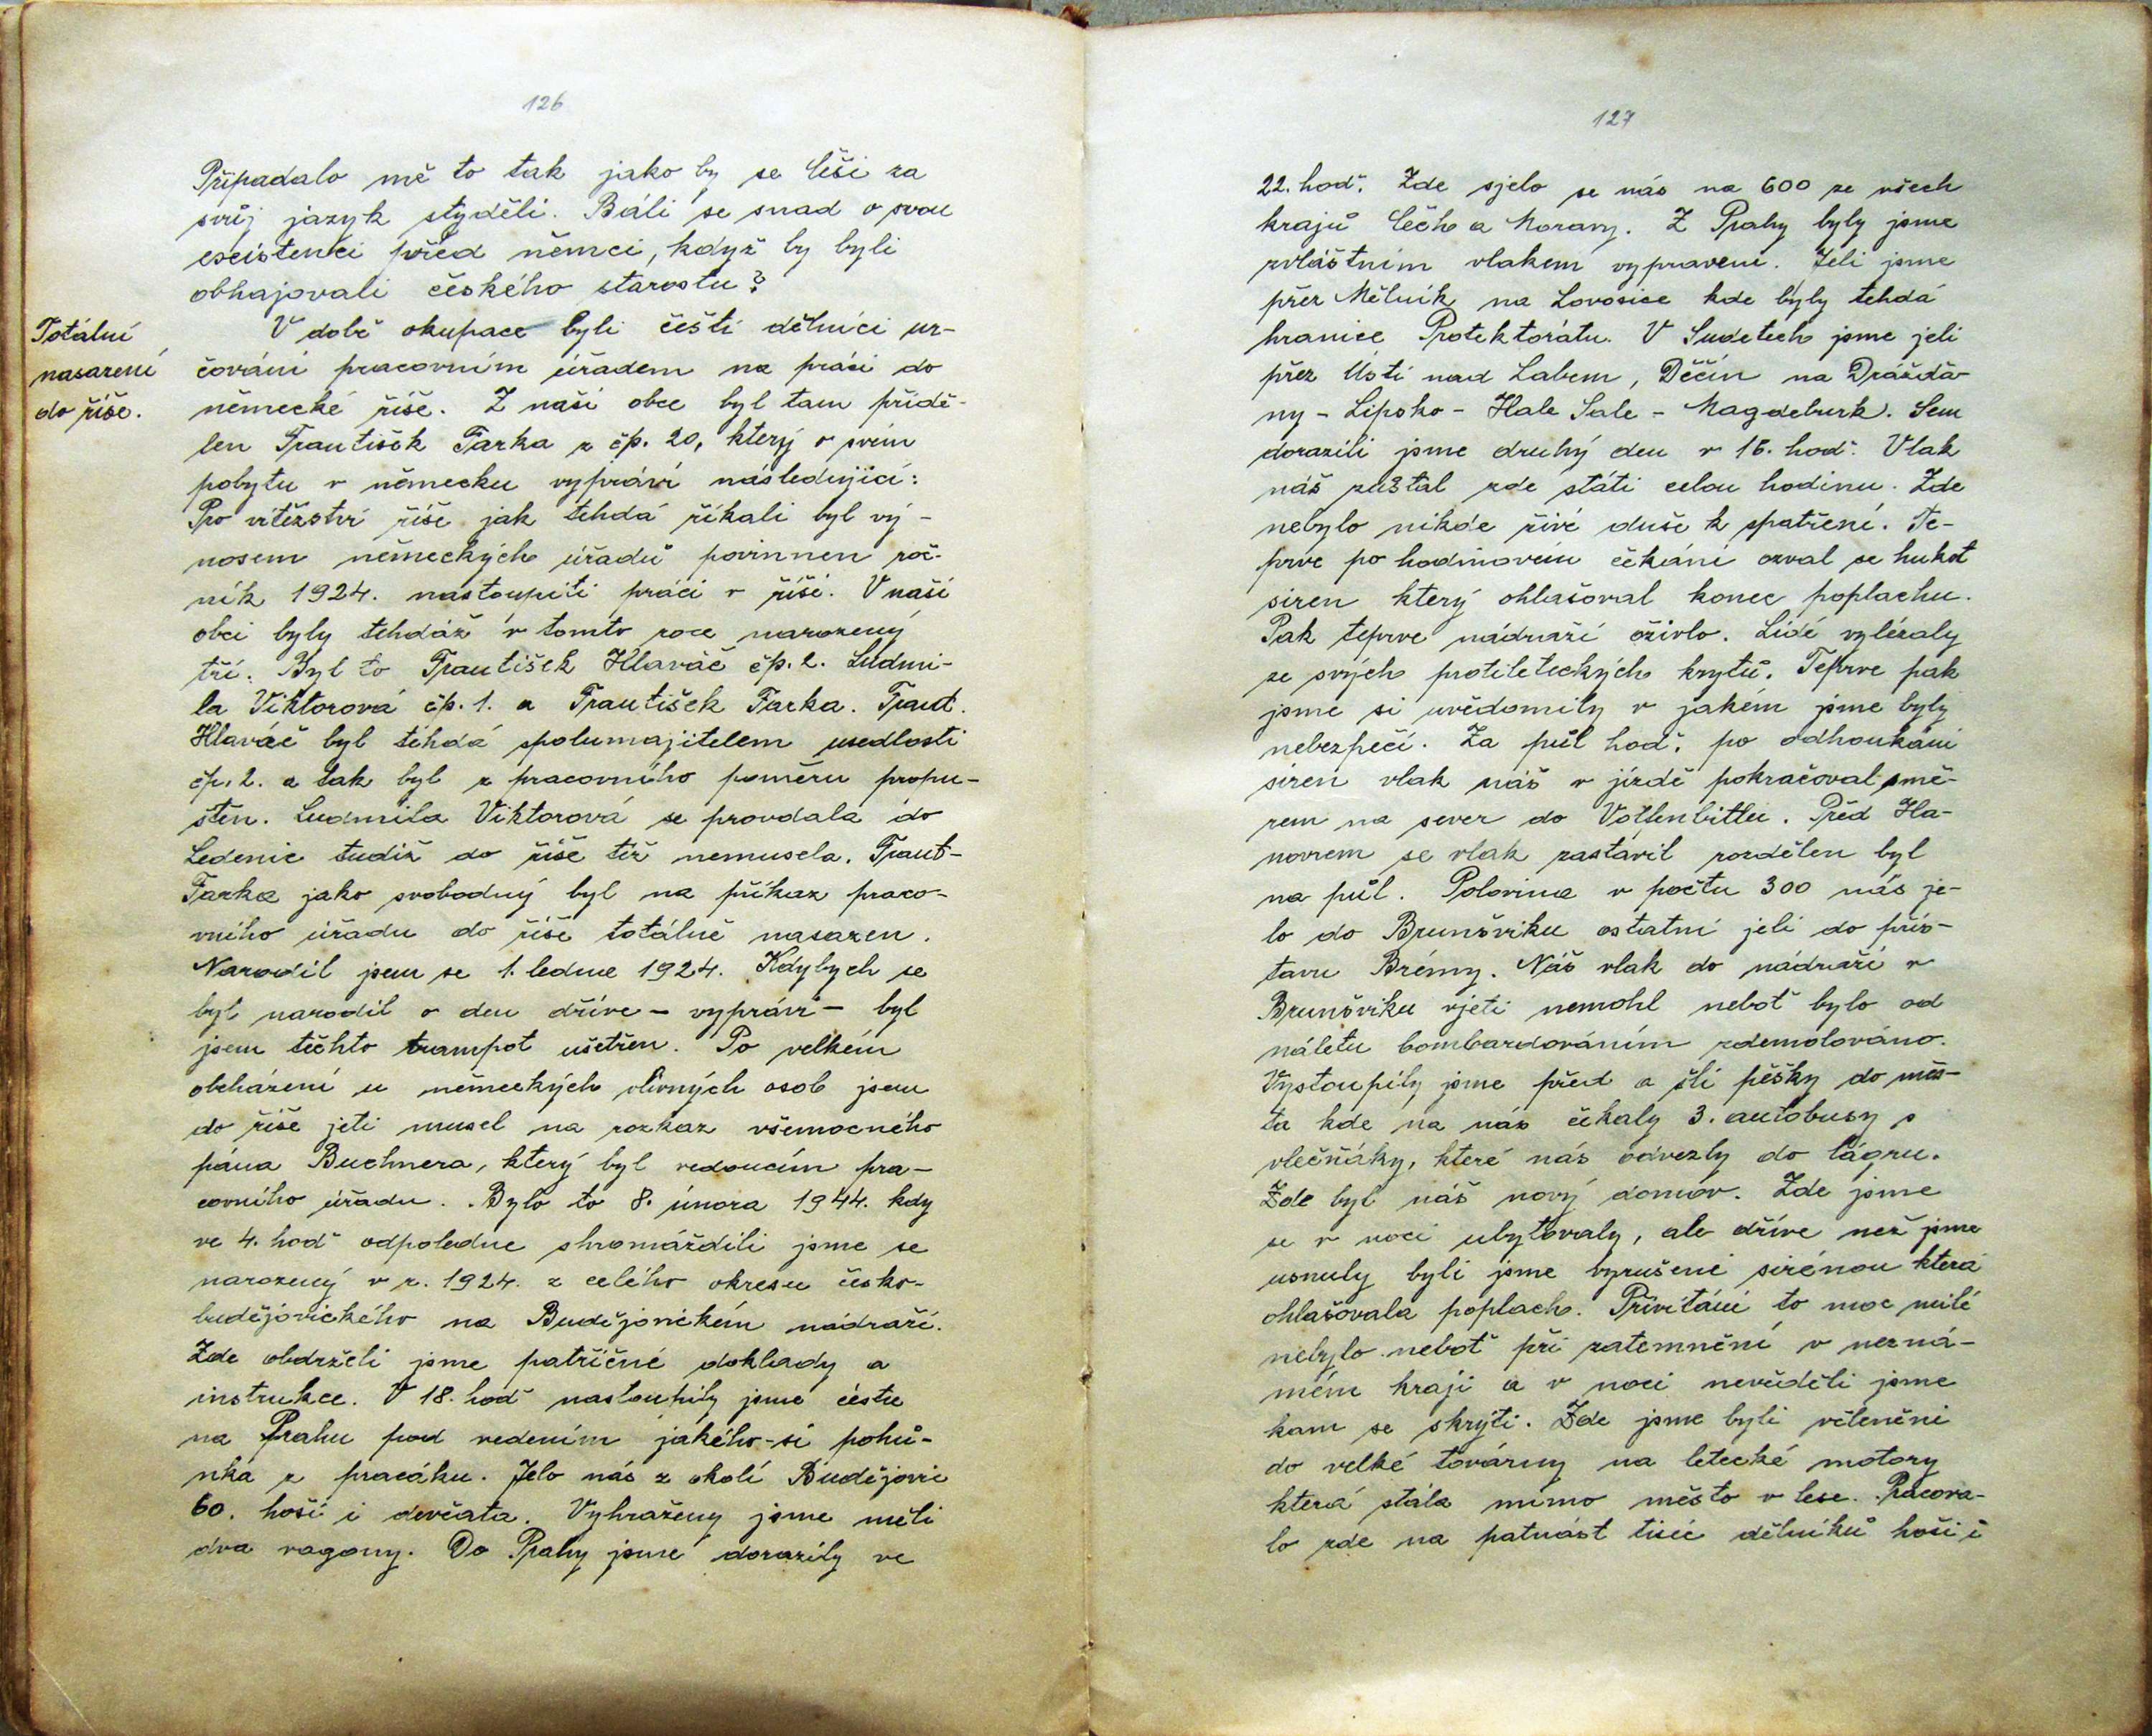 126
Připadalo mě to tak jako by se Češi za
svůj jazyk styděli. Báli se snad o svou
exsistenci před němci, když by byli
obhajovali českého starostu?
Totální
nasazení
do říše.
V době okupace byli čeští dělníci ur-
čováni pracovním úřadem na práci do
německé říše. Z naší obce byl tam přidě-
len František Farka z čp. 20, který o svém
pobytu v německu vypráví následující:
Pro vítězství říše jak tehdá říkali byl vý-
nosem německých úřadů povinnen roč-
ník 1924. nastoupiti práci v říši. V naší
obci byly tehdáž v tomto roce narozený
tři. Byl to František Hlaváč čp. 2. Ludmi-
la Viktorová čp. 1. a František Farka. Frant.
Hlaváč byl tehdá spolumajitelem usedlosti
čp. 2. a tak byl z pracovního poměru propu-
štěn. Ludmila Viktorová se provdala do
Ledenic tudíž do říše též nemusela. Frant-
Farka jako svobodný byl na příkaz praco-
vního úřadu do říše totálně nasazen.
Narodil jsem se 1. ledna 1924. Kdybych se
byl narodil o den dříve - vypráví - byl
jsem těchto trampot ušetřen. Po velkém
obcházení u německých vlivných osob jsem
do říše jeti musel na rozkaz všemocného
pána Buchnera, který byl vedoucím pra-
covního úřadu. Bylo to 8. února 1944. kdy
ve 4. hod odpoledne shromáždili jsme se
narozený v r. 1924. z celého okresu česko-
budějovického na Budějovickém nádraží.
Zde obdrželi jsme patřičné doklady a
instrukce. V 18. hod nastoupily jsme cestu
na Prahu pod vedením jakého-si pohů-
nka z pracáku. Jelo nás z okolí Budějovic
60. hoši i děvčata. Vyhraženy jsme měli
dva vagony. Do Prahy jsme dorazily ve
127
22. hod. Zde sjelo se nás na 600 ze všech
krajů Čech a Moravy. Z Prahy byly jsme
zvláštním vlakem vypraveni. Jeli jsme
přez Mělník na Lovosice kde byly tehdá
hranice Protektorátu. V Sudetech jsme jeli
přez Ústí nad Labem, Děčín na Drážďa-
ny - Lipsko - Hale Sale - Magdeburk. Sem
dorazili jsme druhý den v 16. hod. Vlak
náš zůstal zde státi celou hodinu. Zde
nebylo nikde živé duše k spatření. Te-
prve po hodinovém čekání ozval se hukot
siren který ohlašoval konec poplachu.
Pak teprve nádraží ožívlo. Lidé vylézaly
ze svých protileteckých krytů. Teprve pak
jsme si uvědomily v jakém jsme byly
nebezpečí. Za půl hod. po odhoukání
siren vlak náš v jízdě pokračoval smě-
rem na sever do Volfenbittlu. Před Ha-
novrem se vlak zastavil rozdělen byl
na půl. Polovina v počtu 300 nás je-
lo do Brunšviku ostatní jeli do přís-
tavu Brémy. Náš vlak do nádraží v
Brunšviku vjeti nemohl neboť bylo od
náletu bombardováním zdemolováno.
Vystoupily jsme před a šli pěšky do měs-
ta kde na nás čekaly 3. autobusy s
vlečňáky, které nás odvezly do lágru.
Zde byl náš nový domov. Zde jsme
se v noci ubytovaly, ale dříve než jsme
usnuly byli jsme vyrušeni sirénou která
ohlašovala poplach. Přivítání to moc milé
nebylo neboť při zatemnění v nezná-
mém kraji a v noci nevěděli jsme
kam se skrýti. Zde jsme byli včleněni
do velké továrny na letecké motory
která stála mimo město v lese. Pracova-
lo zde na patnást tisíc dělníků hoši i